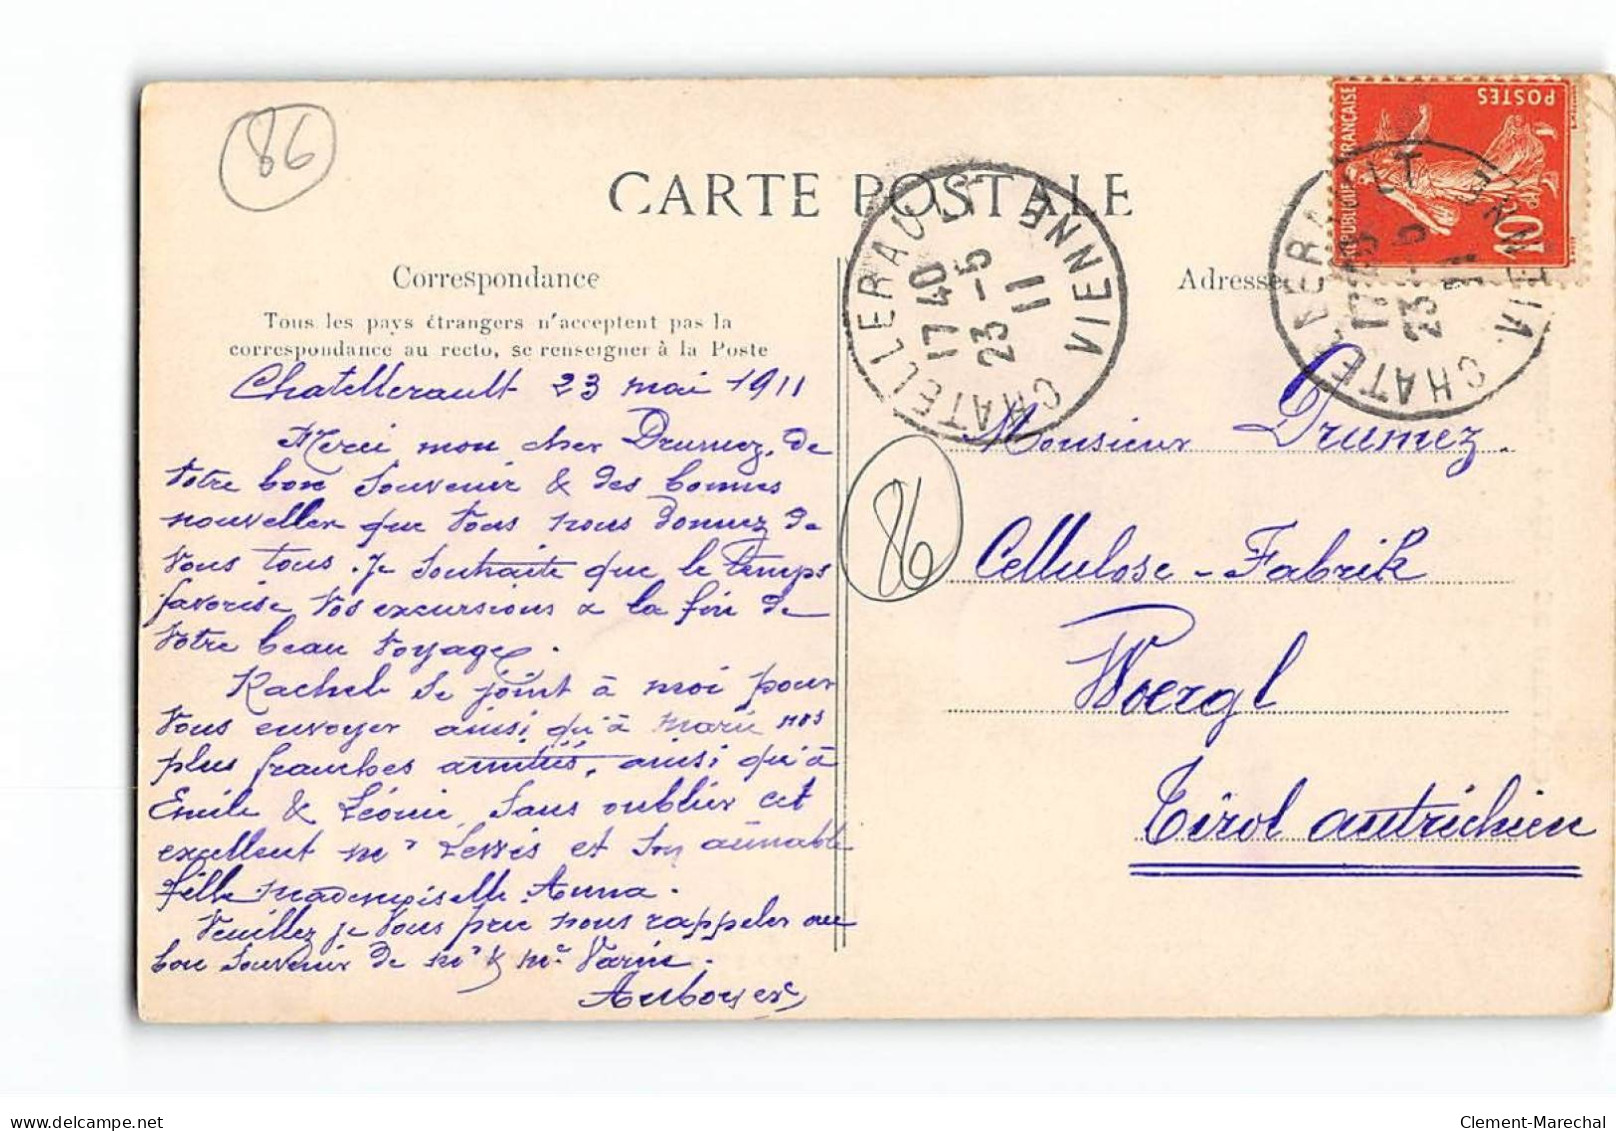 86
CARTE POSTALE
Correspondance
Tous les pays étrangers n'acceptent pas la
correspondance au recto, se renseigner à la Poste
Chatellerault 23 mai 1911
Merci mon cher Drumez, de
votre bon souvenir & des bonnes
nouvelles que vous nous donnez de
vous tous. Je souhaite que le temps
favorise vos excursions & la fin de
votre beau voyage.
Rachel se joint à moi pour
vous envoyer ainsi qu'à Marie nos
plus franches amitiés, ainsi qu'à
Emile & Léonie, sans oublier cet
excellent Mr et son aimable
fille Mademoiselle Anna.
Veuillez je vous prie nous rappeler au
bon souvenir de Mr & Me Varin.
CHATELLERAULT VIENNE
17 40
23 -5
11
86
Adresse
REPUBLIQUE FRANCAISE
POSTES
10c
CHATELLERAULT VIENNE
17
23 -5
11
Monsieur Drumez
Cellulose-Fabrik
Woergl
Tirol autrichien
delcampe.net
Clement-Marechal